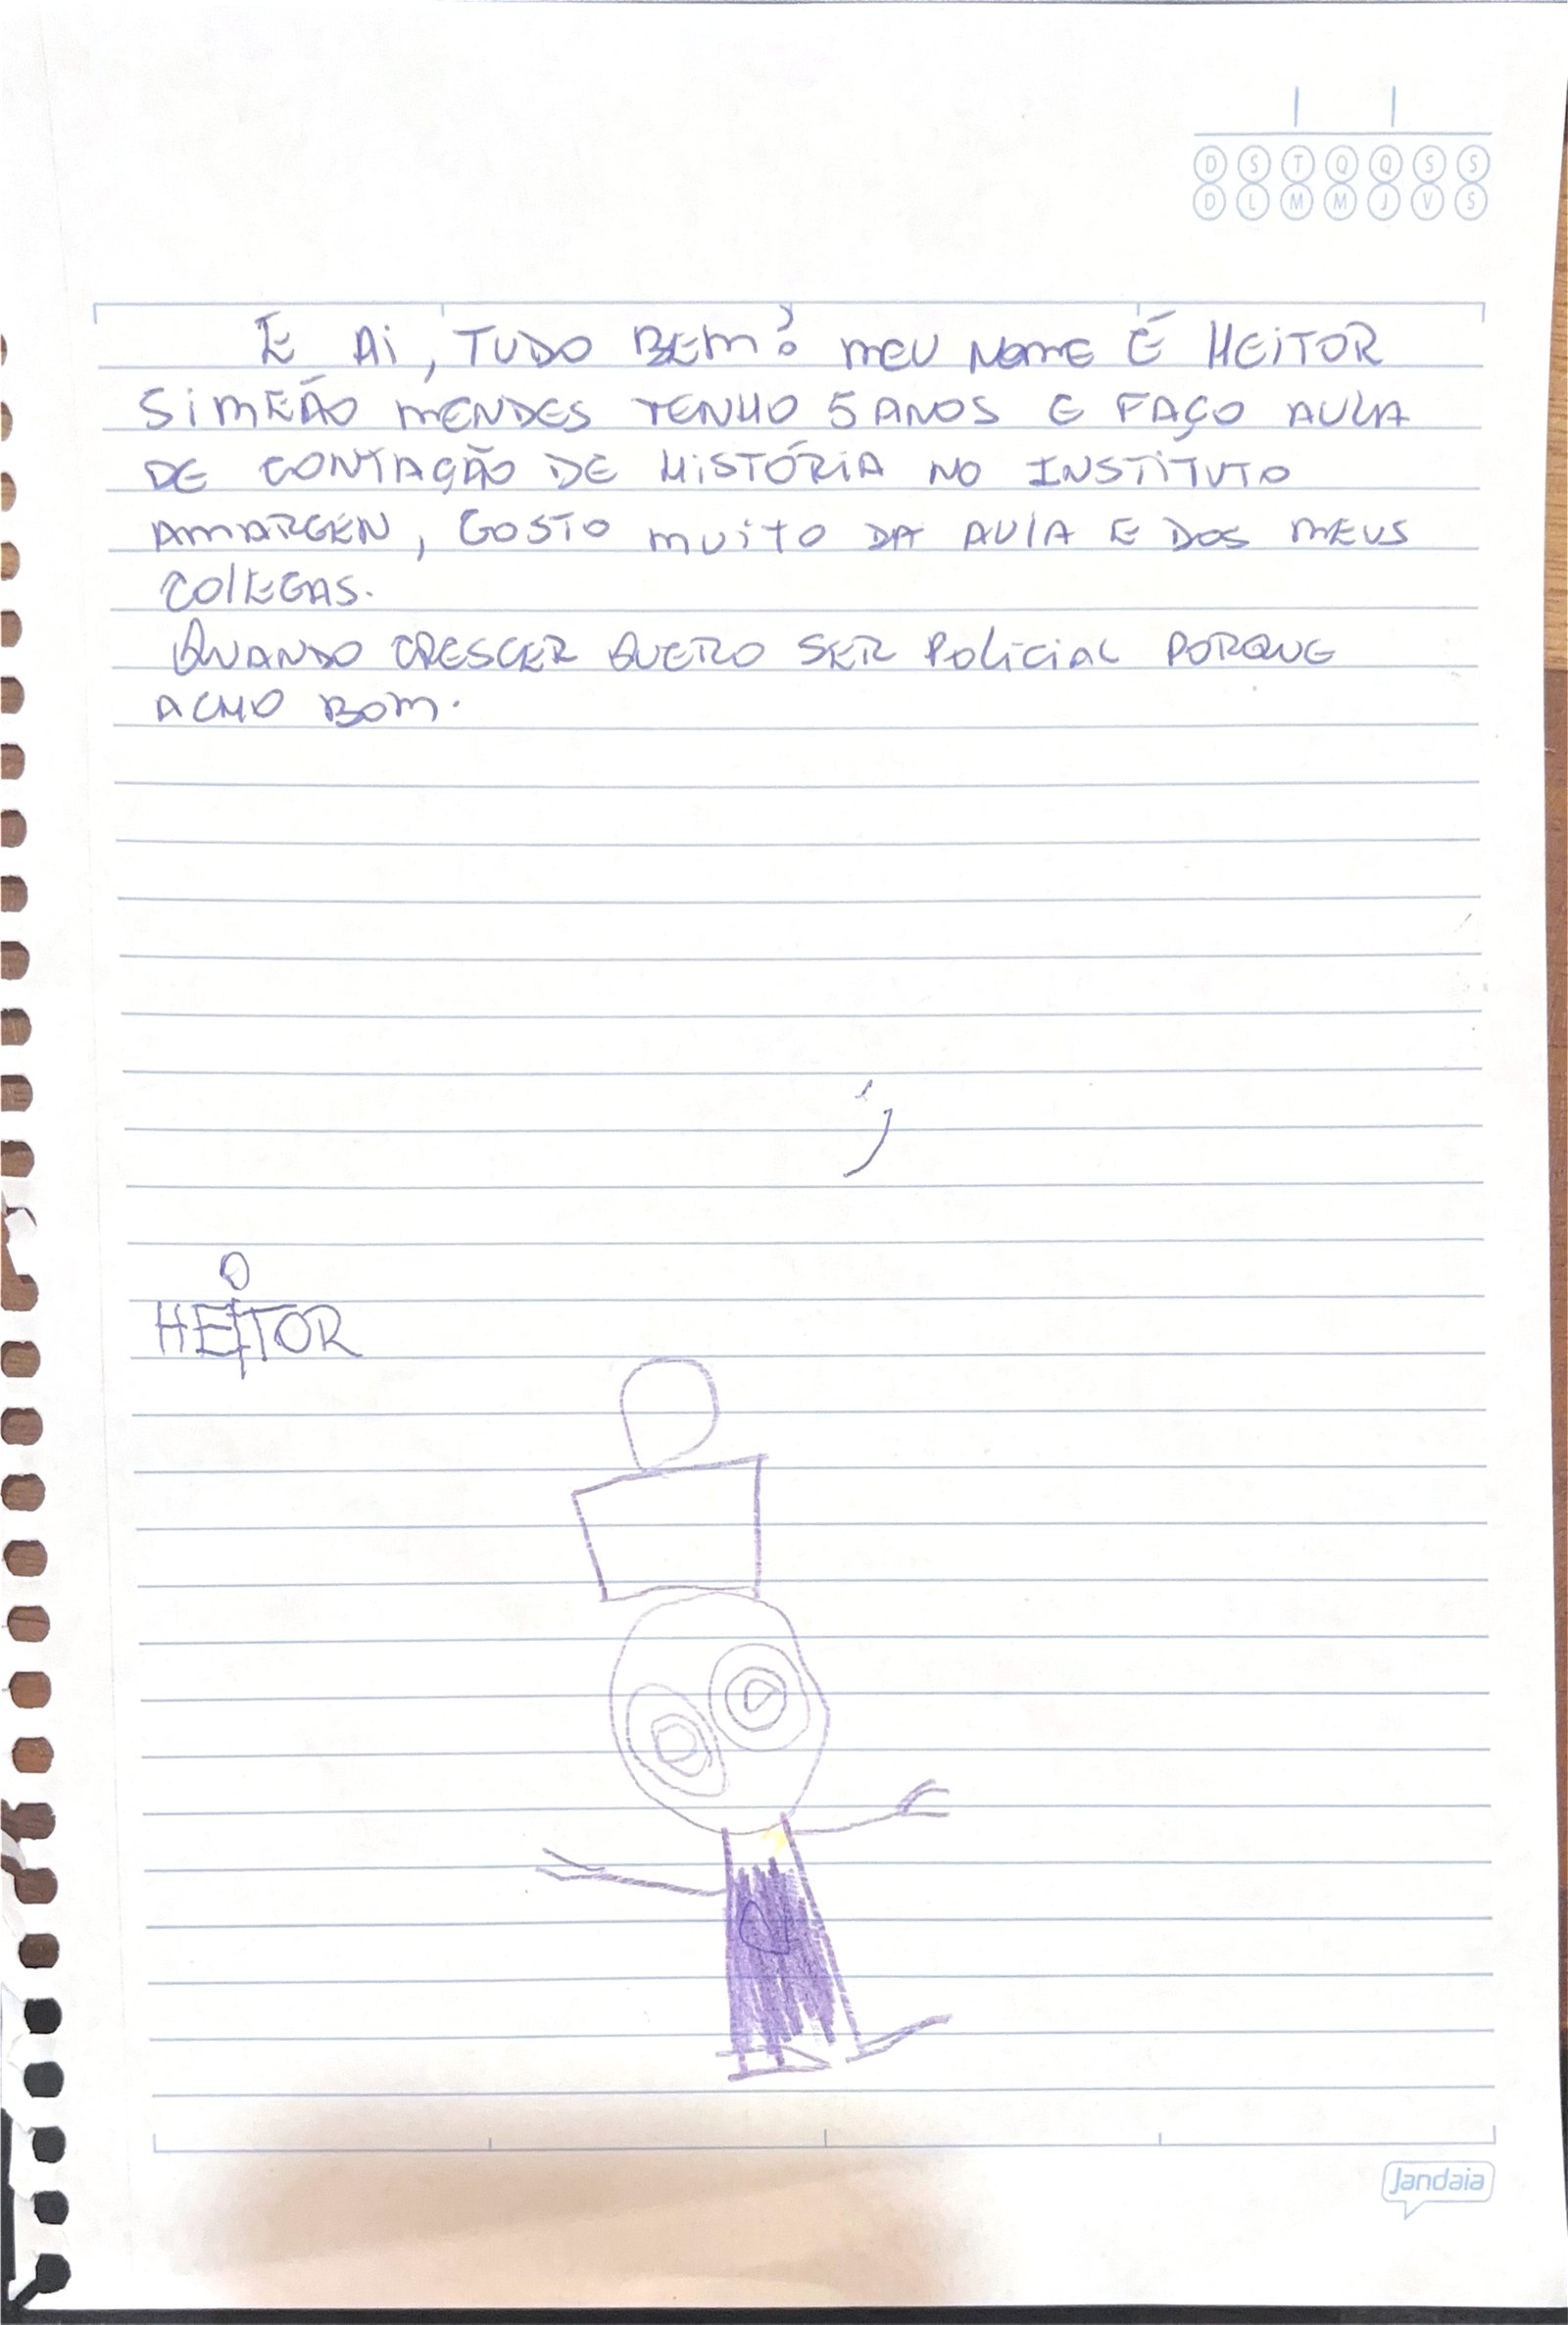 D S T Q Q S S
D L M M J V S
E Aí, TUDO BEM? MEU NOME É HEITOR
SIMEÃO MENDES TENHO 5 ANOS E FAÇO AULA
DE CONTAÇÃO DE HISTÓRIA NO INSTITUTO
AMARGEN, GOSTO MUITO DA AULA E DOS MEUS
COLEGAS.
QUANDO CRESCER QUERO SER POLICIAL PORQUE
ACHO BOM.
HEITOR
Jandaia